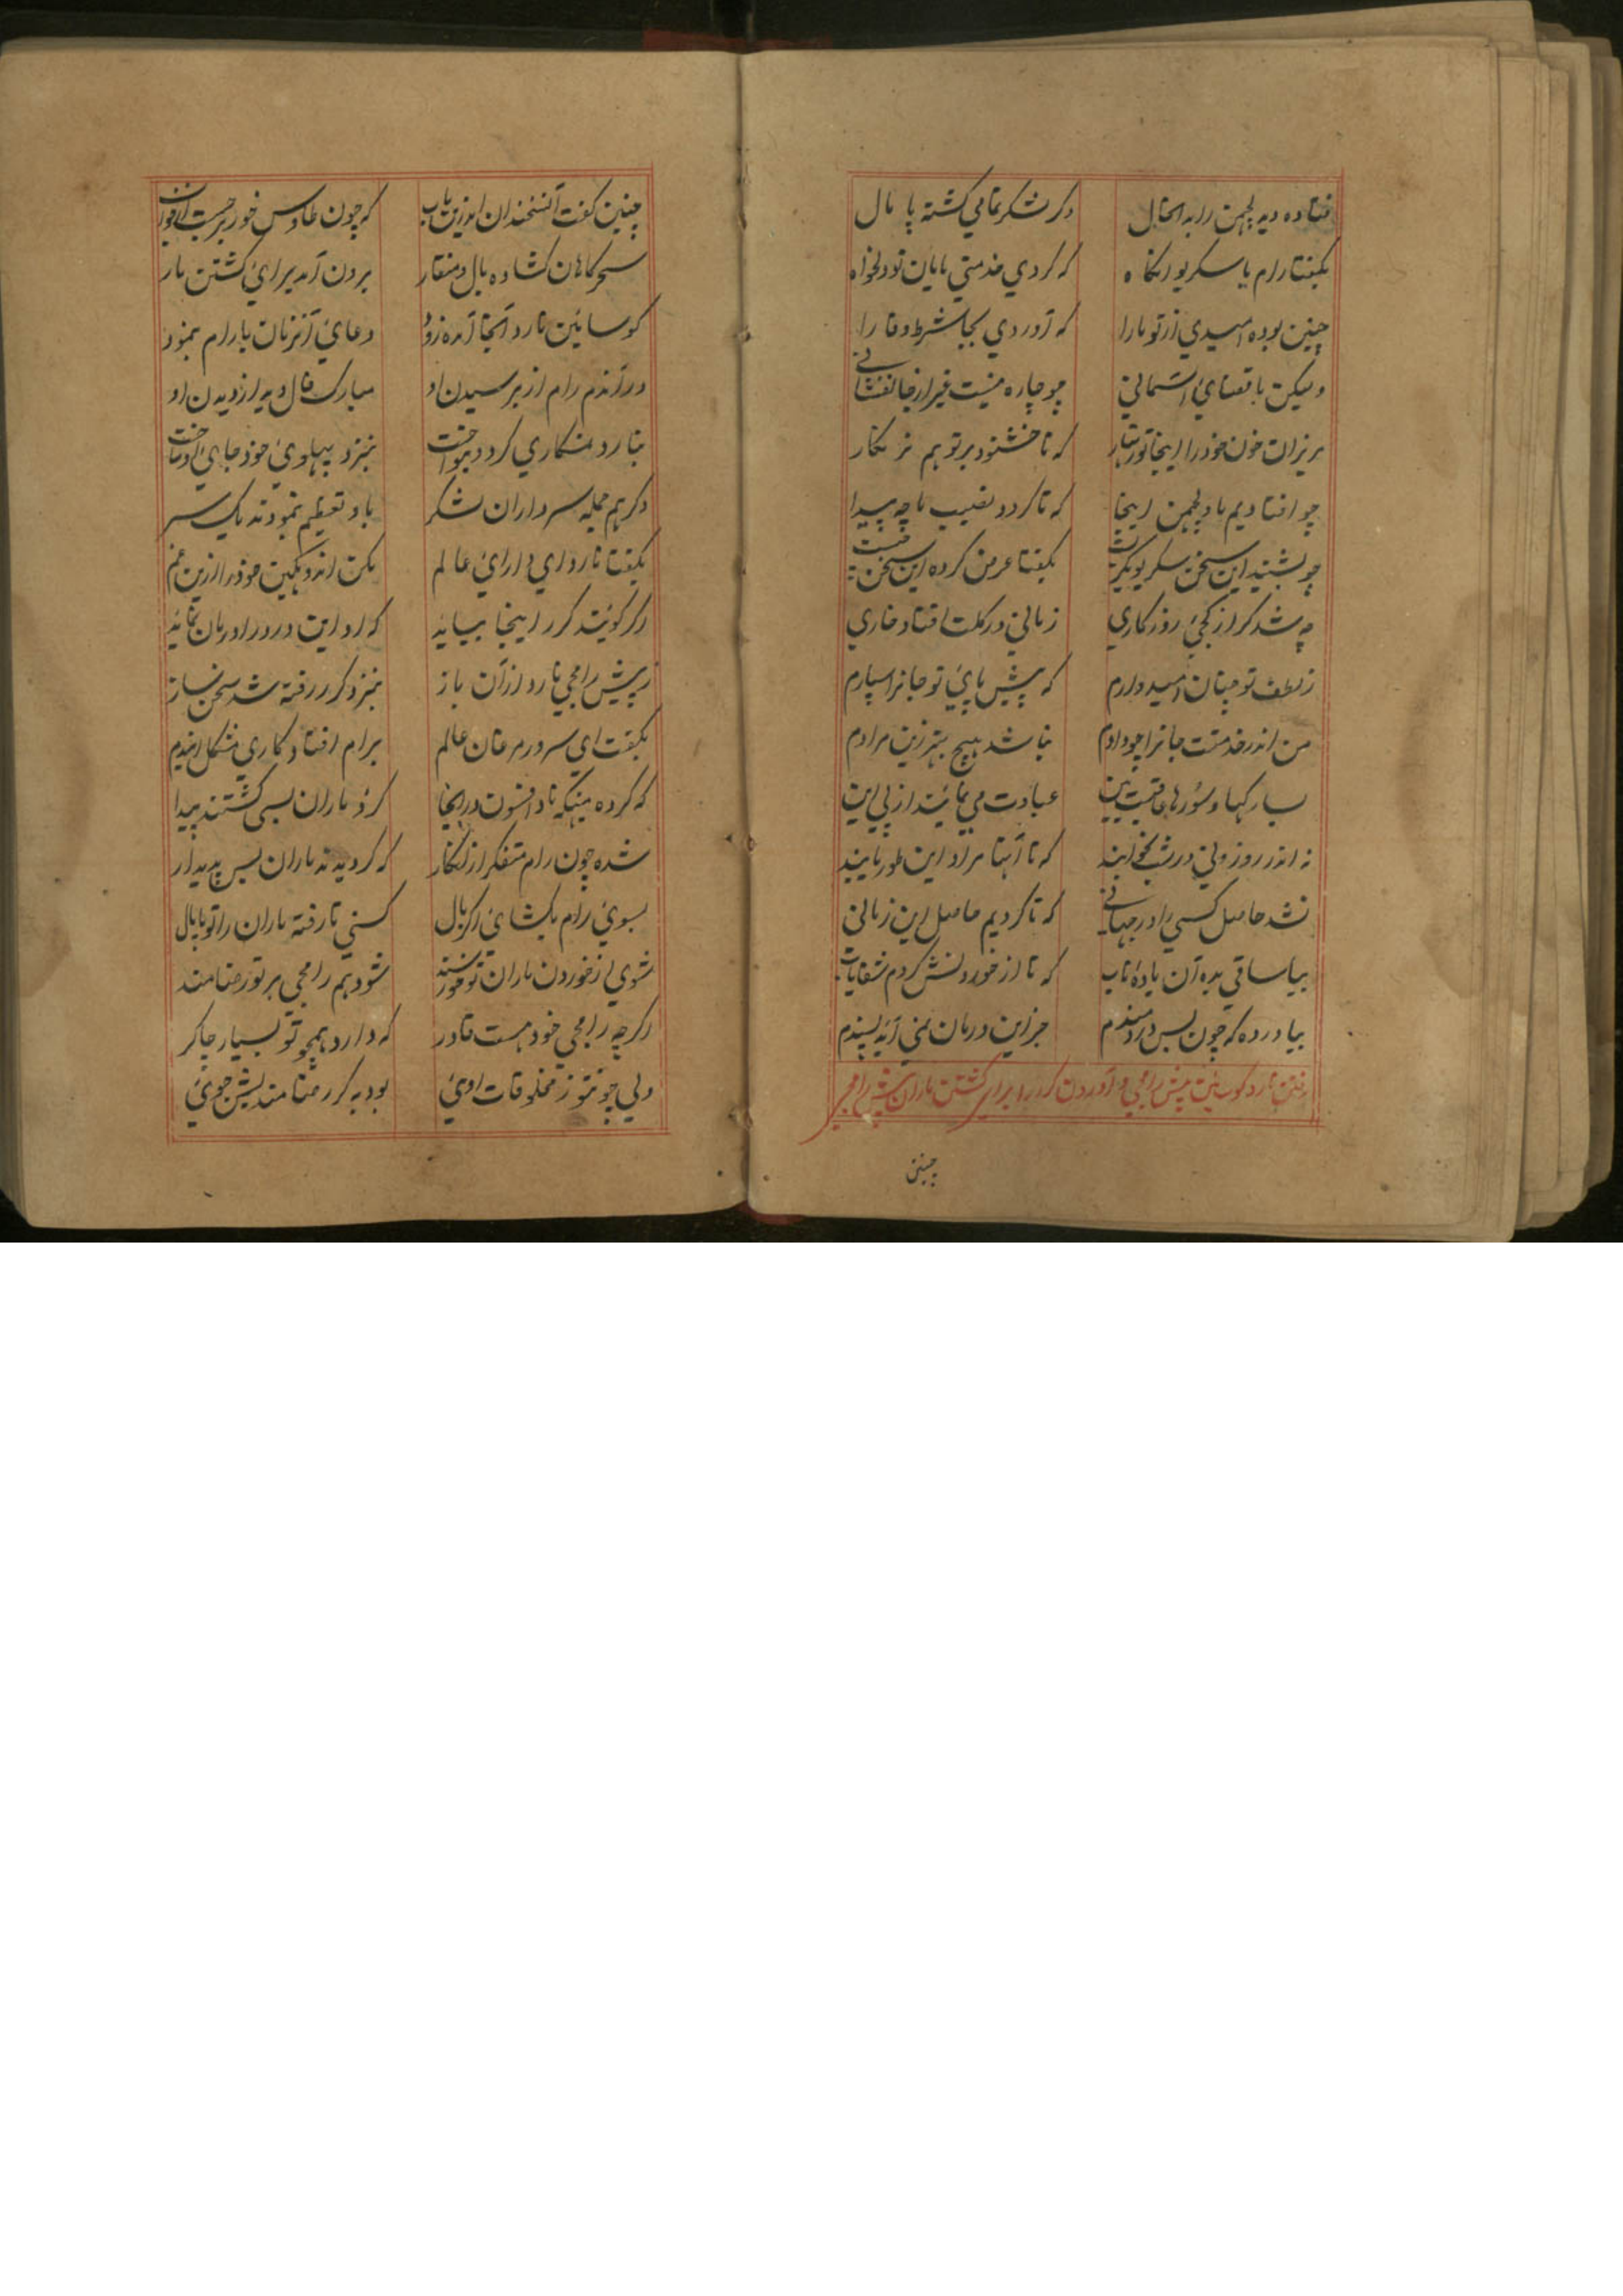 فتاده دید لچمن را به اینحال دگر لشکر تمامی گشته پامال
بگفتا رام با سکریو آنگاه که کردی خدمتی مایان تو دلخواه
چنین بوده امیدی از تو ما را که آوردی بجا شرط وفا را
ولیکن با قضای آسمانی چو چاره نیست غیر از جانفشانی
مریزان خون خود را اینجا تو که ناخشنود بر تو هم
چو افتادیم با لچمن اینجا که تا گردد نصیب ما چه پیدا
چو بشنید این سخن سکریو بگریست بگفتا عرض کرده این سخن چیست
چه شد گر از کجی روزگاری زمانی در گلت افتاد خاری
ز لطف تو چنان امیدوارم که پیش پای تو جانرا سپارم
من اندر خدمتت جانرا چو دادم نباشد هیچ بهتر زین مرادم
عاقبت بین عبادت می نمایند از پی این
نه اندر روز ولی در شب بخوابند که تا آنها مراد این طور یابند
نشد حاصل کسی را در جهانی که تا کردیم حاصل این زمانی
بیا ساقی بده آن باده ناب که تا از خوردنش گردم شفایاب
بیاور ده که چون بس دردمندم جز این درمان نمی آید پسندم
رفتن نارد گوسائین پیش رامجی و آوردن گرر را برای کشتن ماران پیش رامجی
چنین
چنین گفت آن سخندان اندرین باب که چون طاوس خور برجست از خواب
سحرگاهان گشاده بال و منقار برون آمد برای کشتن مار
گوسائین نارد آنجا آمده زود دعای آنزمان با رام بنمود
درآندم رام از بر رسیدن او مبارک فال دید از دیدن او
بنارد نمسکاری کرد و بنواخت بنزد پهلوی خود جای او ساخت
دگر هم جمله سرداران لشکر باو تعظیم نمودند یک سر
بگفتا نارد ای دارای عالم مکن اندوهگین خود را ازین غم
اگر گویند گرر اینجا بیاید که او این درد را درمان نماید
ز پیش رامجی نارد از آن باز بنزد گرر رفته شد سخن ساز
بگفت ای سرور مرغان عالم برام افتاد کاری مشکل ایندم
که کرده میگهناد افسون در اینجا کزو ماران بسی گشتند پیدا
شده چون رام متفکر ازنکار که گردیدند ماران بس پدیدار
بسوی رام بگشای اگر بال کنی تا رفته ماران را تو پامال
شوی از خوردن ماران تو خورسند شود هم رامجی بر تو رضامند
اگرچه رامجی خود هست قادر که دارد همچو تو بسیار چاکر
ولی چون تو ز مخلوقات اوئی